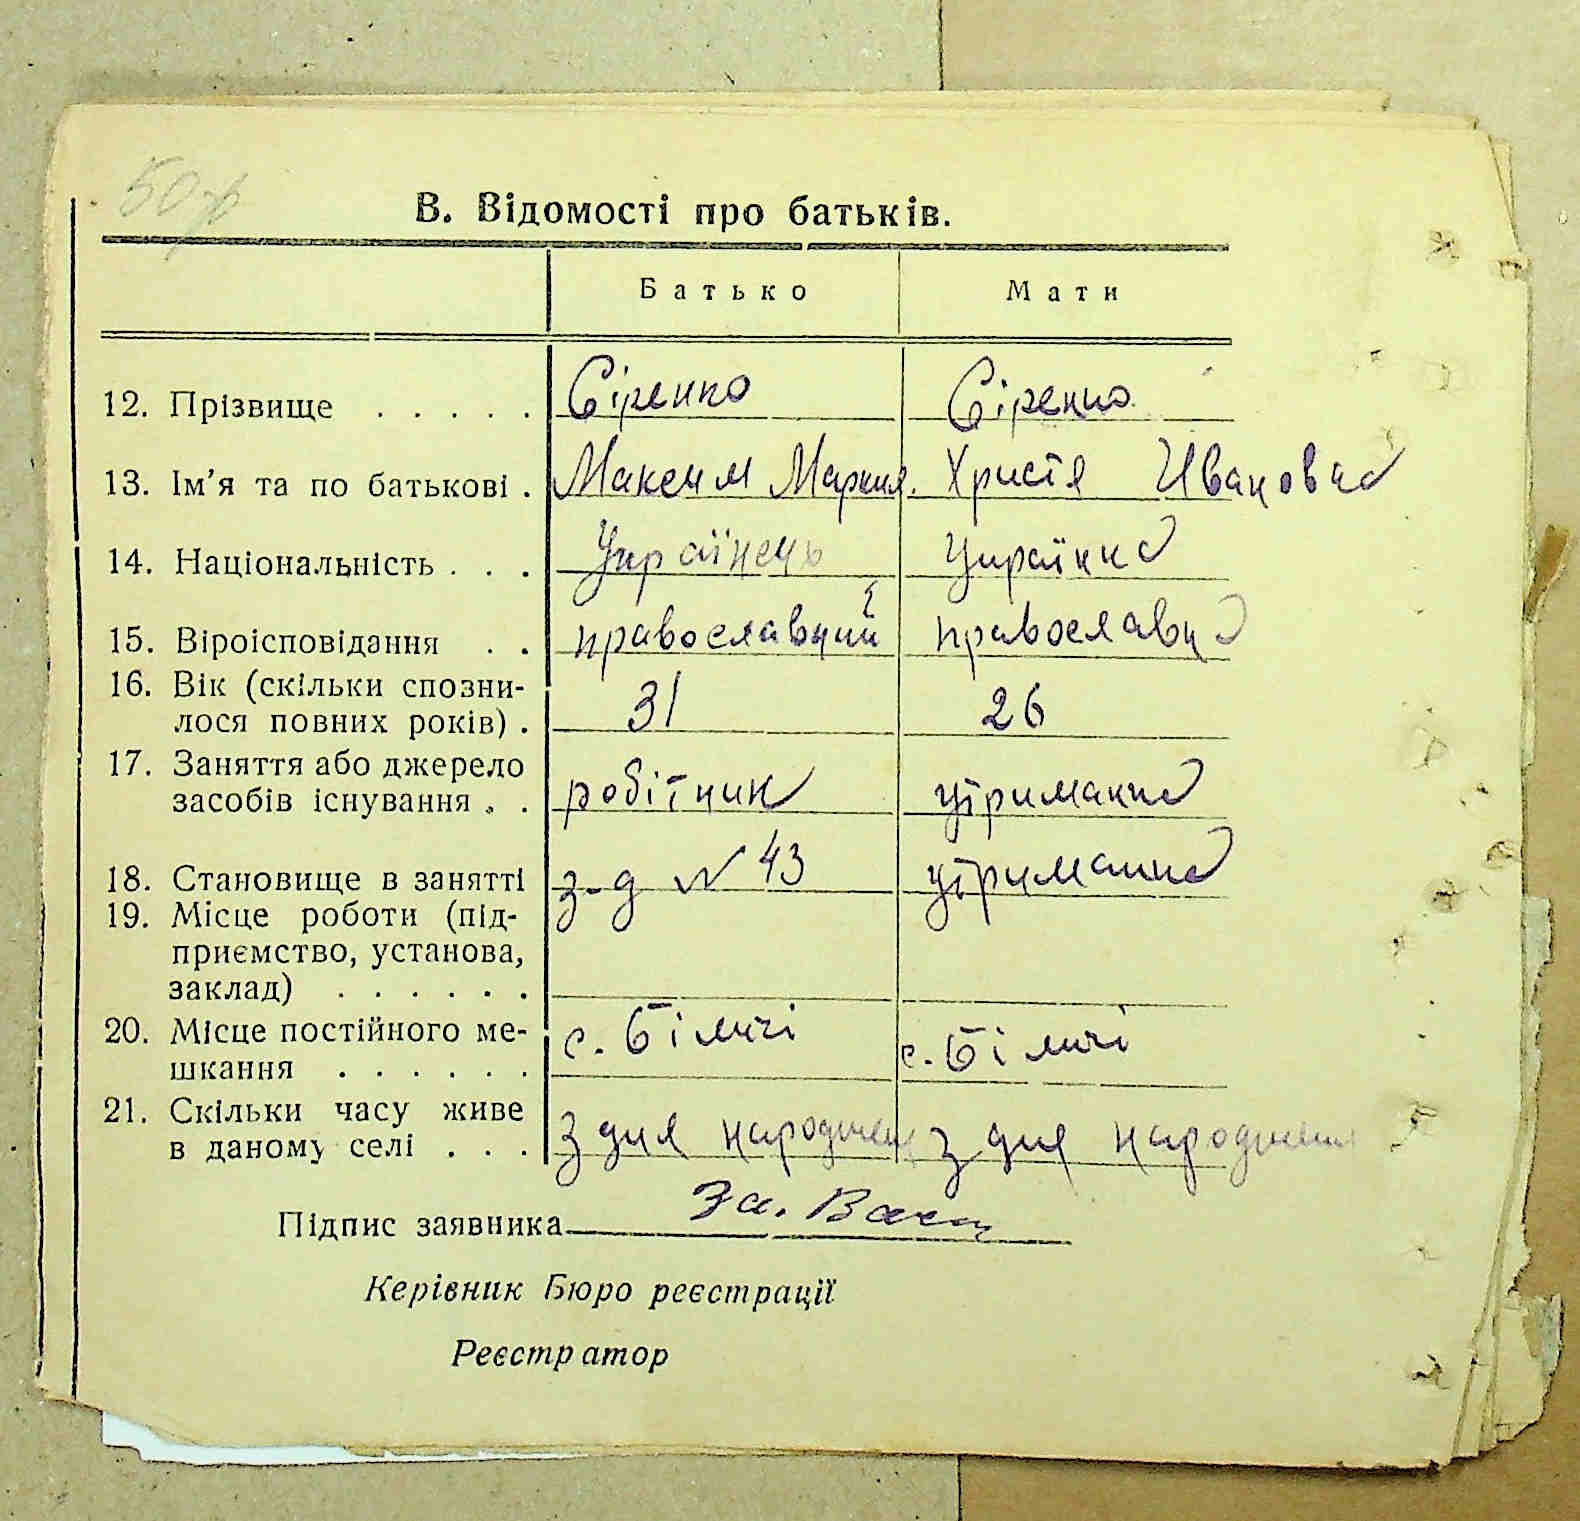 50
В. Відомості про батьків.
Батько Мати
12. Прізвище . . . . . Сіренко Сіренко
13. Ім'я та по батькові . Максим Маркия. Христя Ивановна
14. Національність . . . Українець Українка
15. Віроісповідання . . православний православна
16. Вік (скільки сповни-
лося повних років) . 31 26
17. Заняття або джерело
засобів існування . . робітник утриманка
18. Становище в занятті з-д № 43 утриманка
19. Місце роботи (під-
приємство, установа,
заклад) . . . . . .
20. Місце постійного ме-
шкання . . . . . . с. Біличі с. Біличі
21. Скільки часу живе
в даному селі . . . З дня народжен З дня народження
Підпис заявника За.
Керівник Бюро реєстрації
Реєстратор